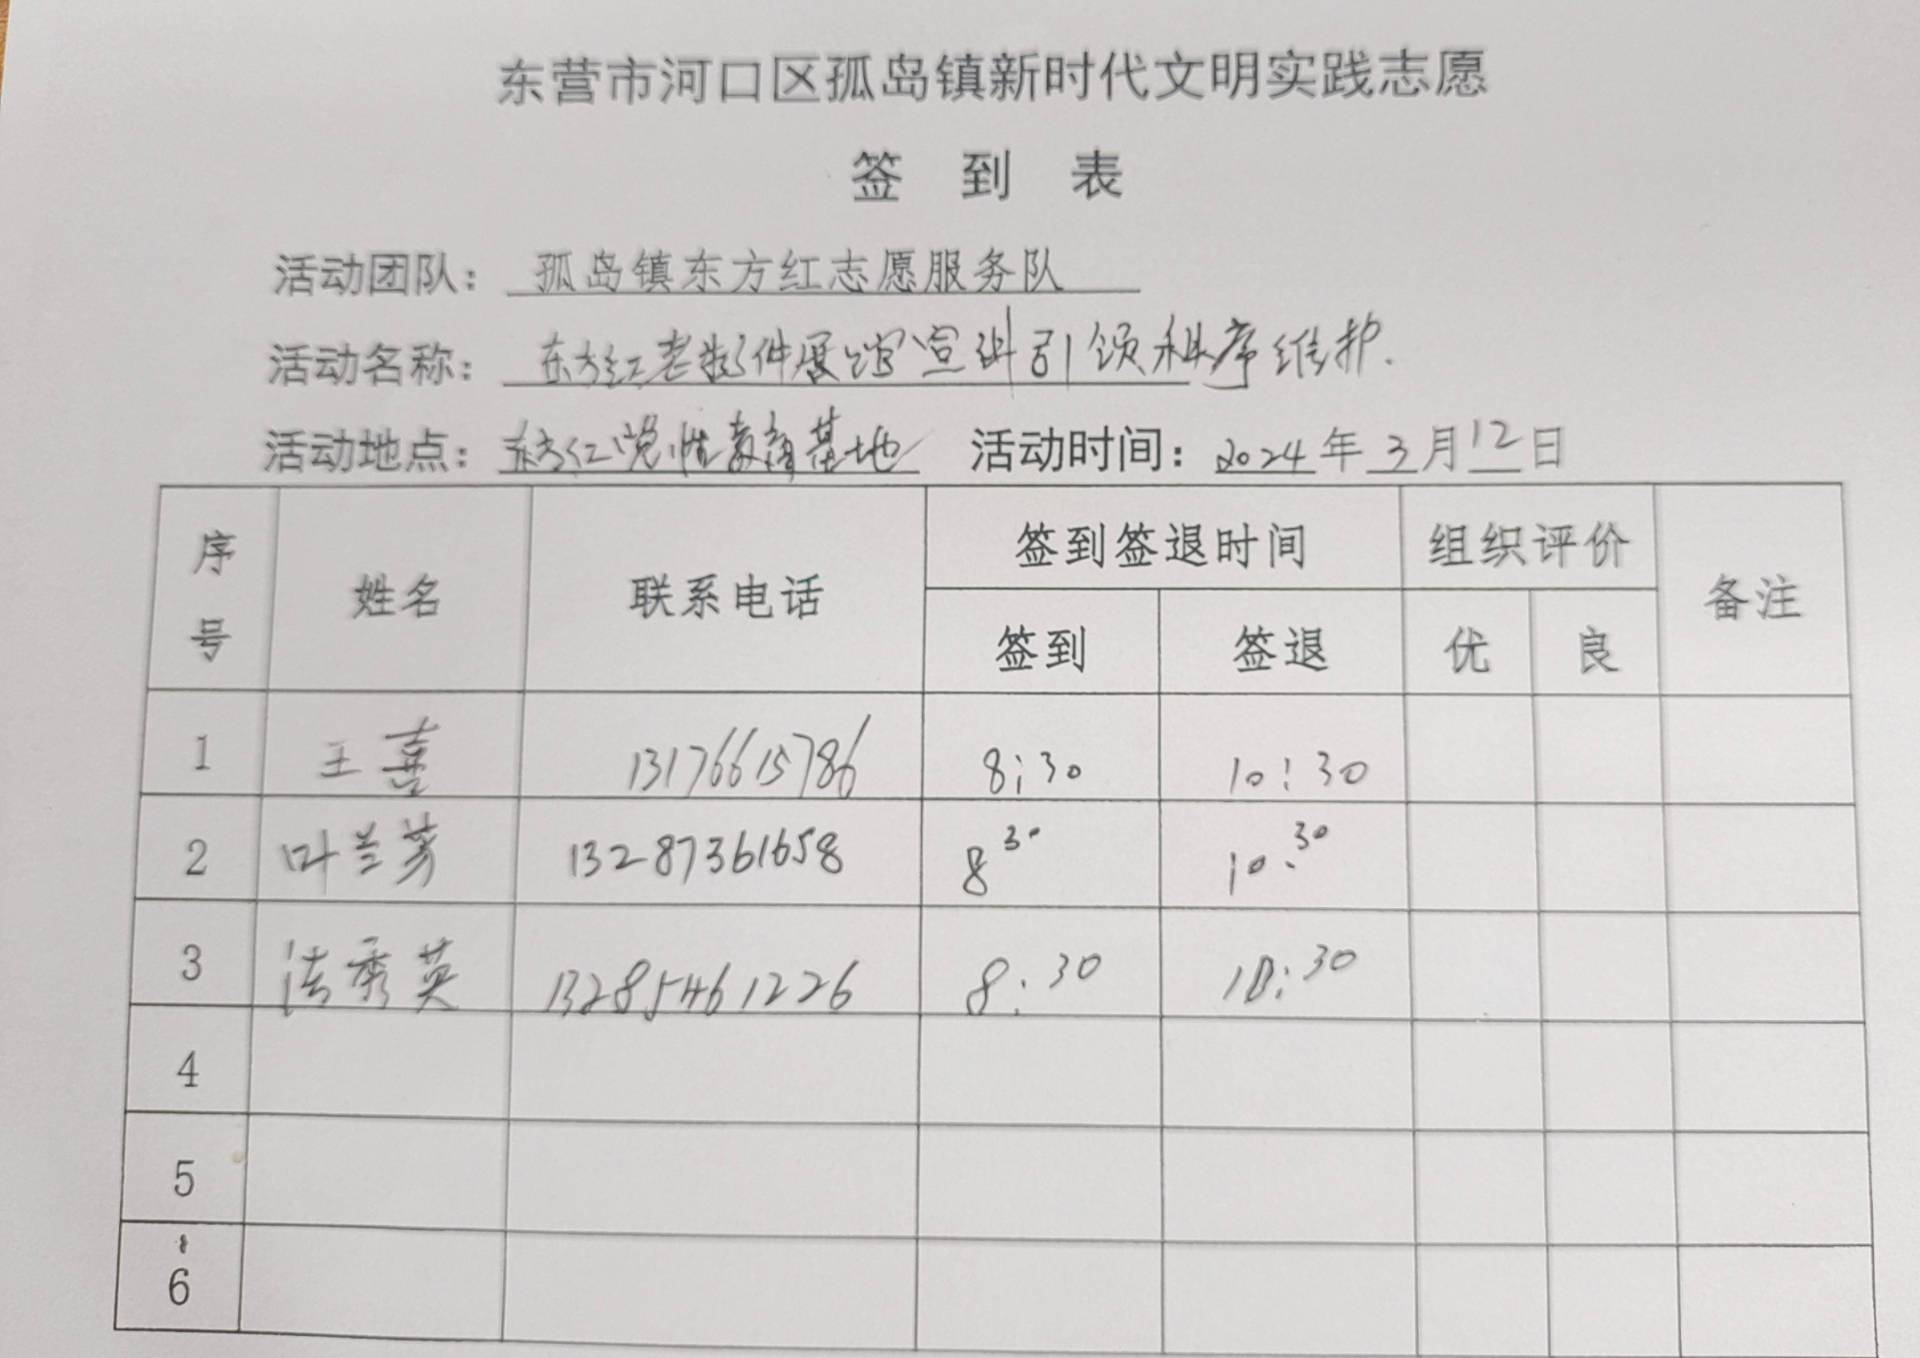 东营市河口区孤岛镇新时代文明实践志愿
签 到 表
活动团队：孤岛镇东方红志愿服务队
活动名称：东方红老物件展馆宣讲引领秩序维护.
活动地点：东方红党性教育基地 活动时间：2024年3月12日
序号 姓名 联系电话 签到签退时间 组织评价 备注
签到 签退 优 良
1 王喜 13176615786 8:30 10:30
2 叶兰芳 13287361658 8 30 10.30
3 秀英 13285461226 8:30 10:30
4
5
6